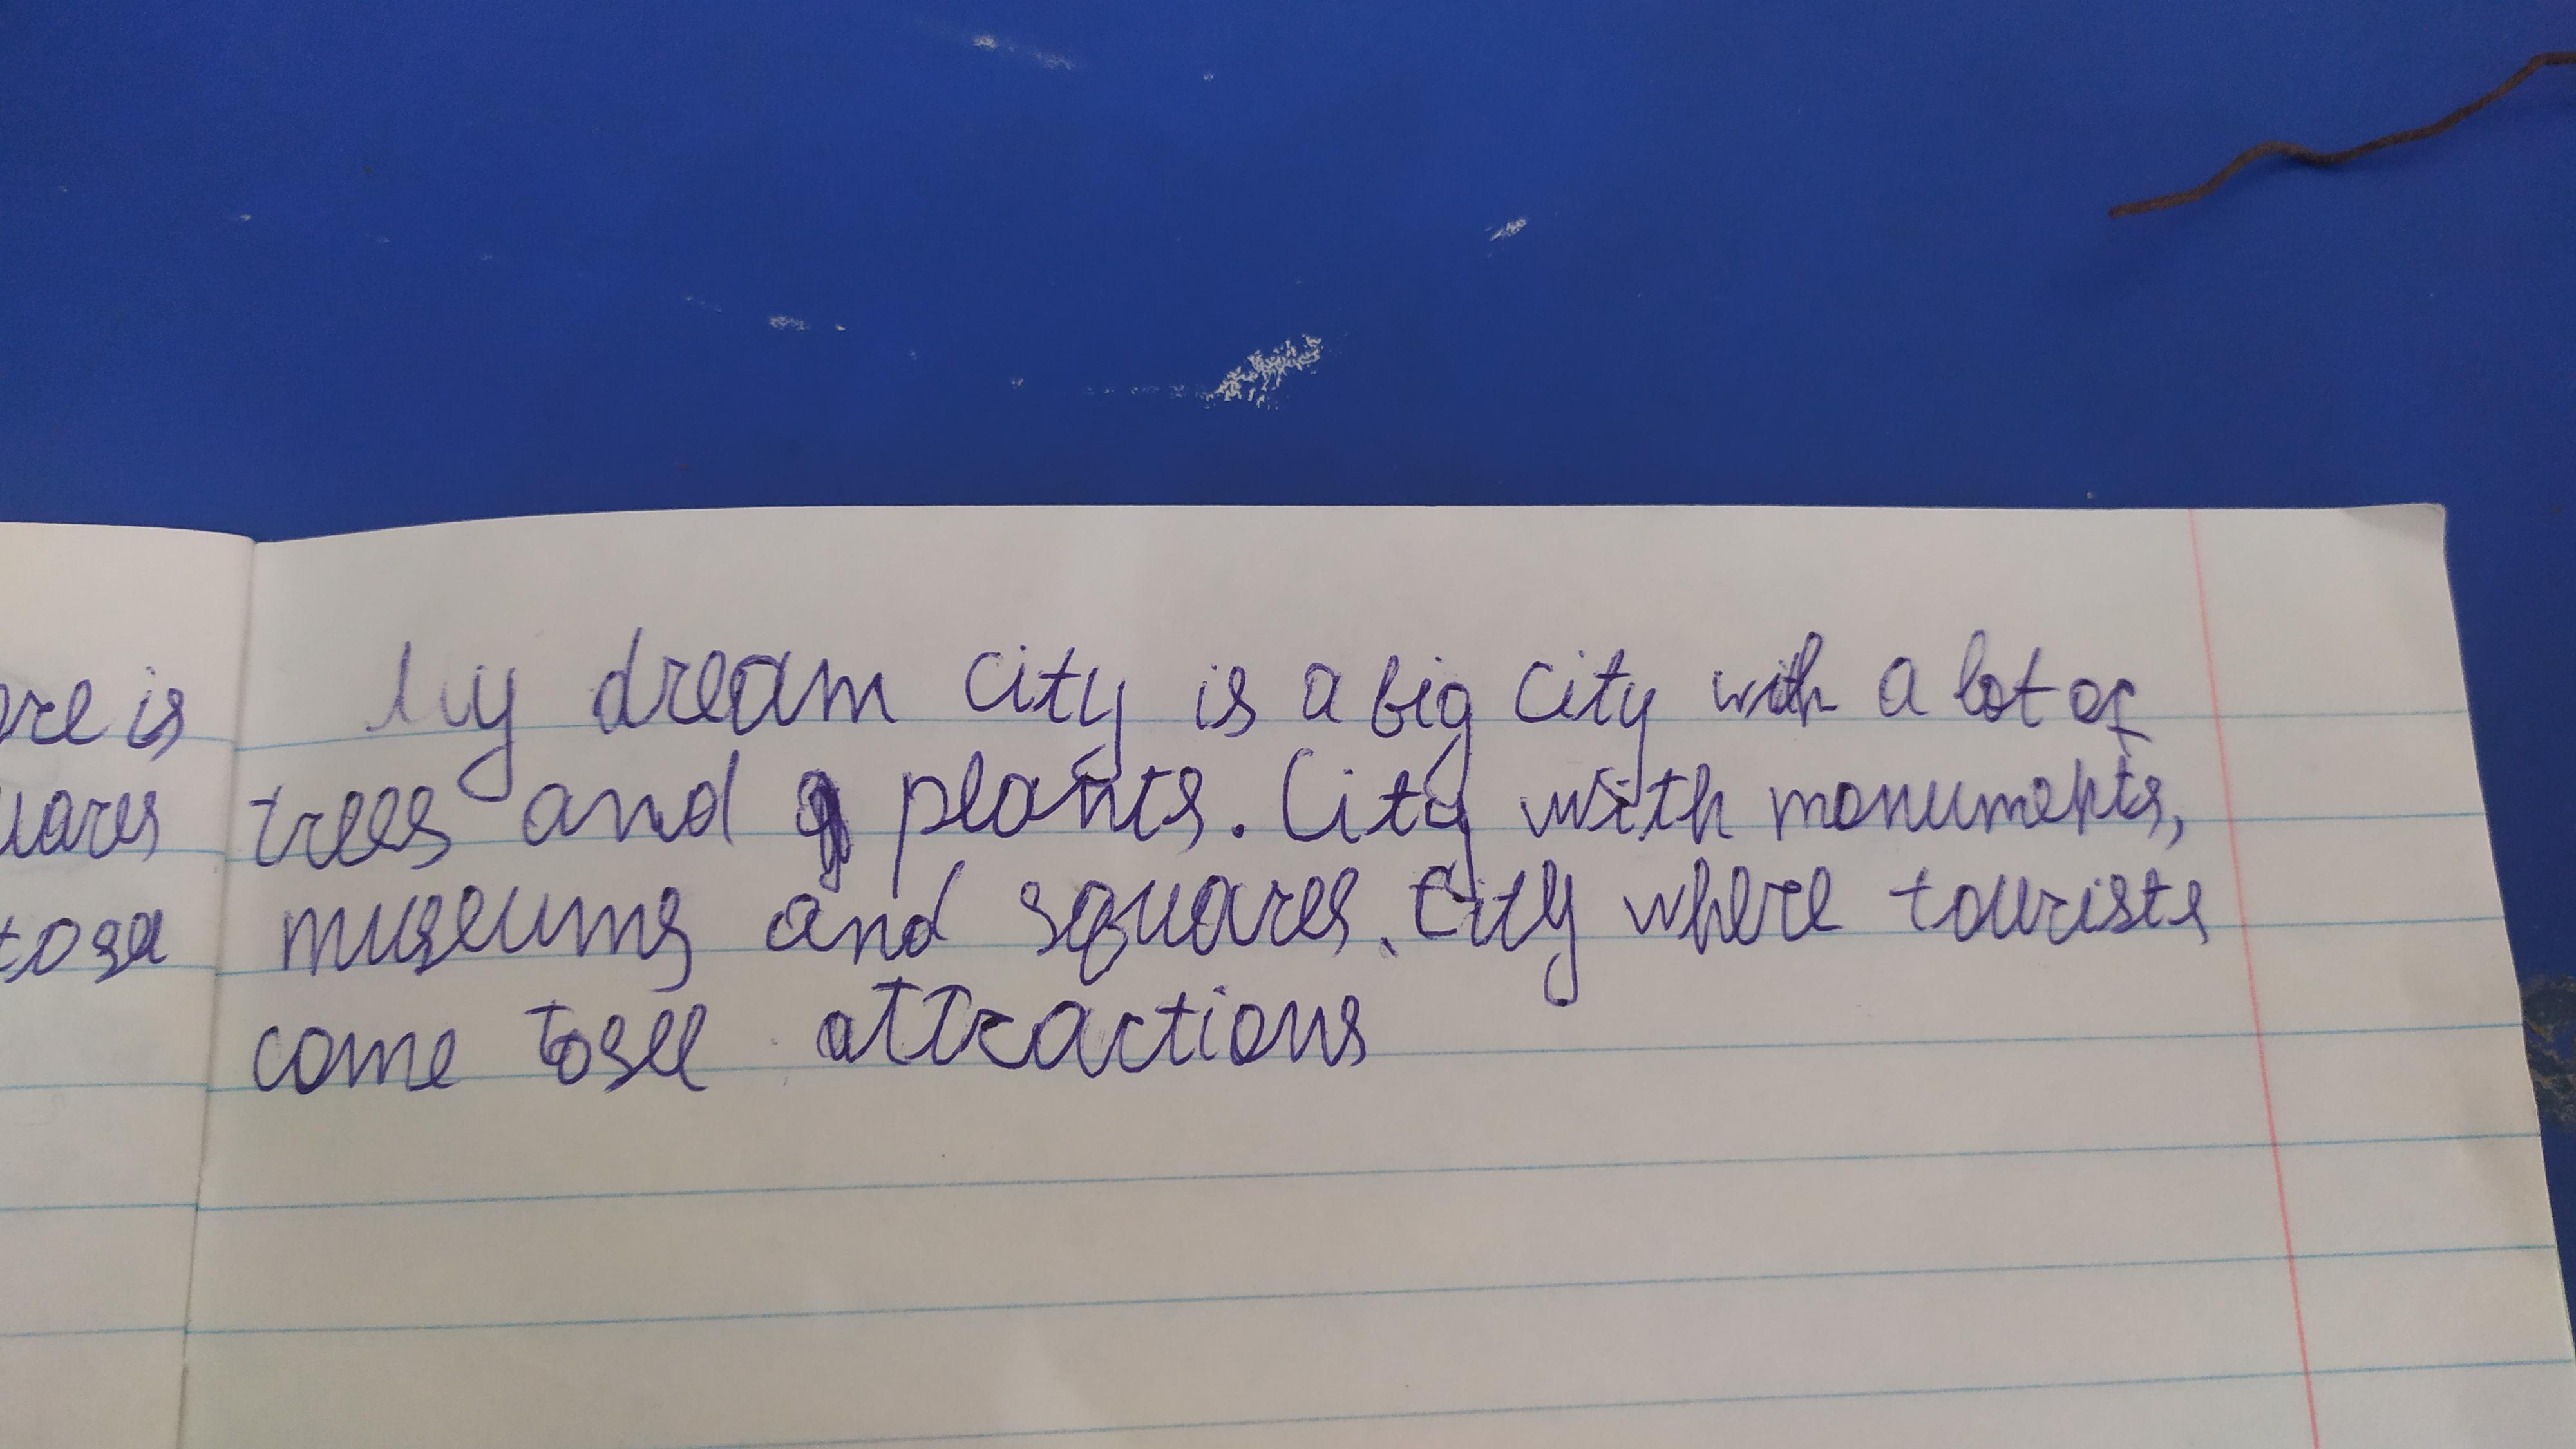 ere is
uares
to see
My dream city is a big city with a lot of
trees and plants. City with monuments,
museums and squares. City where tourists
come to see attractions